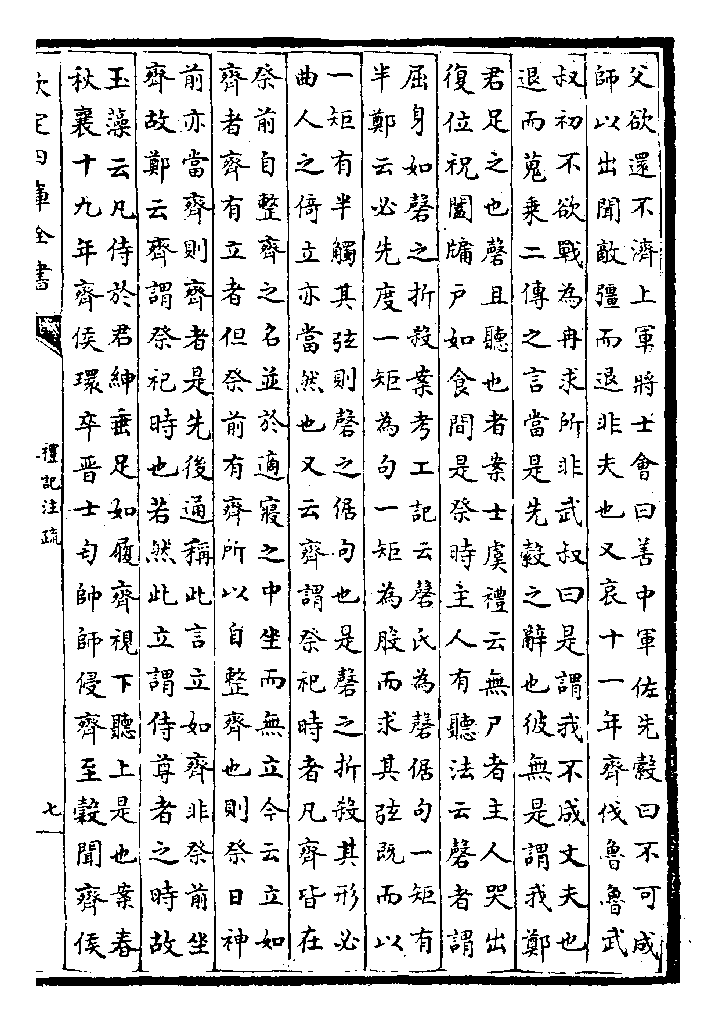 父欲還不濟上軍將士會曰善中軍佐先縠曰不可成
師以出聞敵彊而退非夫也又哀十一年齊伐魯魯武
叔初不欲戰為冉求所非武叔曰是謂我不成丈夫也
退而蒐乗二傳之言當是先縠之辭也彼無是謂我鄭
君足之也磬且聽也者案士虞禮云無尸者主人哭出
復位祝闔牖戸如食間是祭時主人有聽法云磬者謂
屈身如磬之折殺案考工記云磬氏為磬倨句一矩有
半鄭云必先度一矩為句一矩為股而求其弦既而以
一矩有半觸其弦則磬之倨句也是磬之折殺其形必
曲人之倚立亦當然也又云齊謂祭祀時者凡齊皆在
祭前自整齊之名並於適寢之中坐而無立今云立如
齊者齊有立者但祭前有齊所以自整齊也則祭日神
前亦當齊則齊者是先後通稱此言立如齊非祭前坐
齊故鄭云齊謂祭祀時也若然此立謂侍尊者之時故
玉藻云凡侍於君紳垂足如履齊視下聽上是也案春
秋襄十九年齊侯環卒晉士匄帥師侵齊至穀聞齊侯
欽定四庫全書
禮記注疏
七